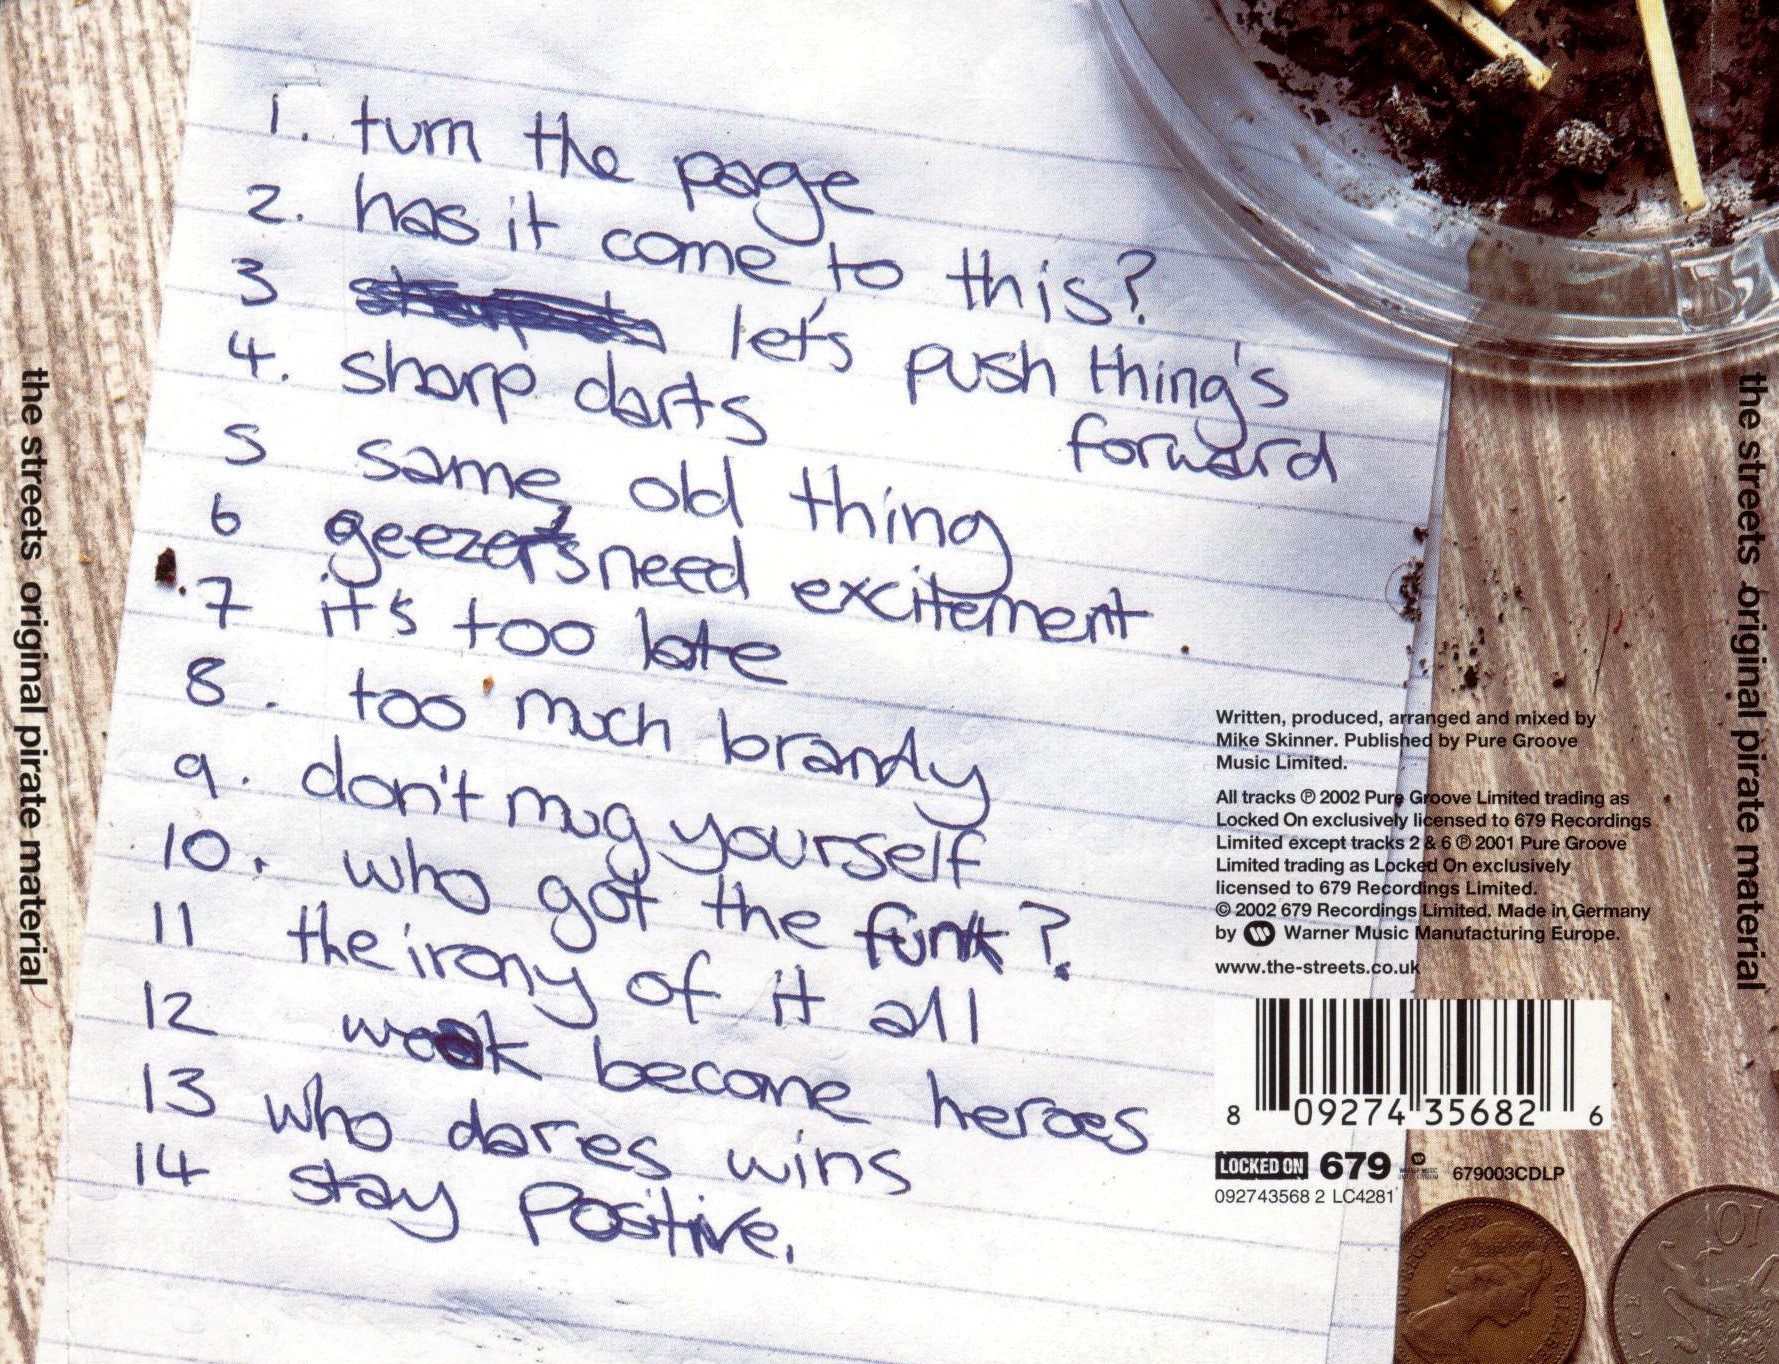 1. turn the page
2. has it come to this?
3 let's push thing's
forward
4. sharp darts
5 same old thing
6 geezer's need excitement
7 it's too late
8. too much brandy
9. don't mug yourself
10. who got the funk?
11 the irony of it all
12 weak become heroes
13 who dares wins
14 stay positive.
the streets original pirate material
the streets original pirate material
Written, produced, arranged and mixed by
Mike Skinner. Published by Pure Groove
Music Limited.
All tracks ℗ 2002 Pure Groove Limited trading as
Locked On exclusively licensed to 679 Recordings
Limited except tracks 2 & 6 ℗ 2001 Pure Groove
Limited trading as Locked On exclusively
licensed to 679 Recordings Limited.
© 2002 679 Recordings Limited. Made in Germany
by Warner Music Manufacturing Europe.
www.the-streets.co.uk
8 09274 35682 6
LOCKED ON 679 679003CDLP
092743568 2 LC4281
10